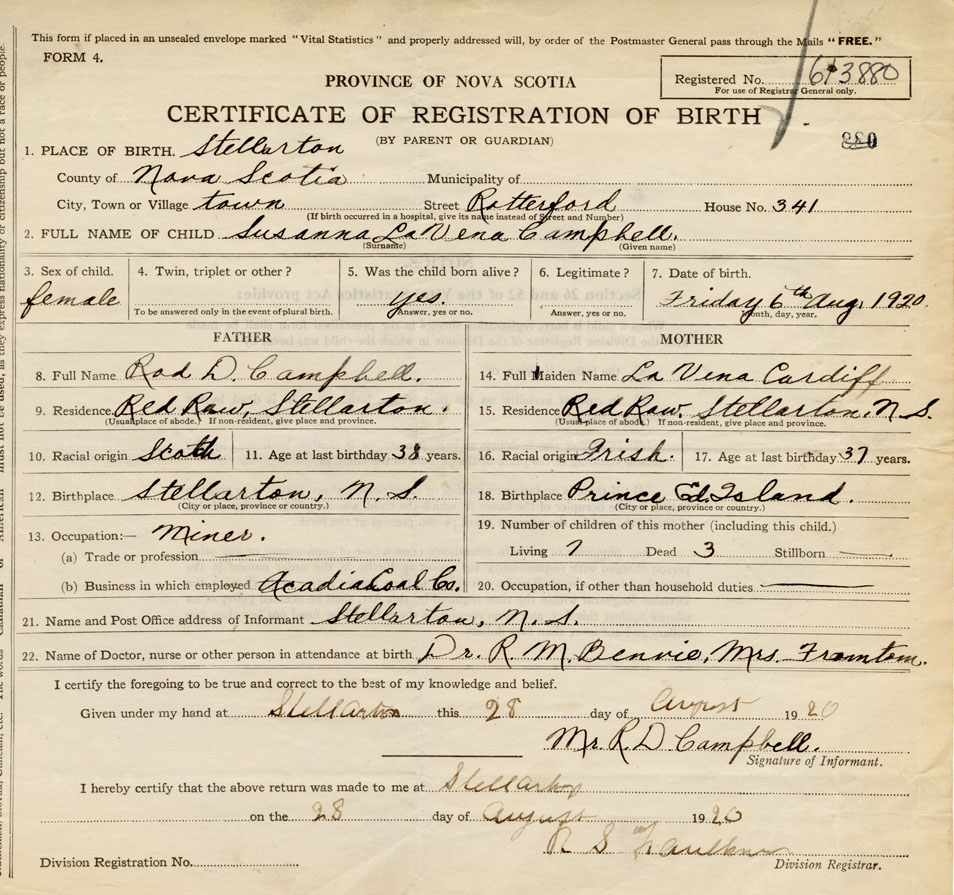 This form if placed in an unsealed envelope marked "Vital Statistics" and properly addressed will, by order of the Postmaster General pass through the Mails "FREE."
FORM 4.
PROVINCE OF NOVA SCOTIA
Registered No. 613880
For use of Registrar General only.
CERTIFICATE OF REGISTRATION OF BIRTH
(BY PARENT OR GUARDIAN)
1. PLACE OF BIRTH. Stellarton
County of Nova Scotia Municipality of
City, Town or Village town Street Rotterford House No. 341
(If birth occurred in a hospital, give its name instead of Street and Number)
2. FULL NAME OF CHILD Susanna LaVena Campbell.
(Surname) (Given name)
3. Sex of child. 4. Twin, triplet or other? 5. Was the child born alive? 6. Legitimate? 7. Date of birth.
female yes. Friday 6th Aug. 1920.
To be answered only in the event of plural birth. Answer, yes or no. Answer, yes or no. Month, day, year.
FATHER MOTHER
8. Full Name Rod D. Campbell. 14. Full Maiden Name La Vena Cardiff
9. Residence. Red Raw, Stellarton. 15. Residence Red Raw. Stellarton, N S.
(Usual place of abode.) If non-resident, give place and province. (Usual place of abode.) If non-resident, give place and province.
10. Racial origin Scoth 11. Age at last birthday 38 years. 16. Racial origin Irish. 17. Age at last birthday 37 years.
12. Birthplace Stellarton, N. S. 18. Birthplace Prince Ed. Island.
(City or place, province or country.) (City or place, province or country.)
13. Occupation:— Miner. 19. Number of children of this mother (including this child.)
(a) Trade or profession Living 7 Dead 3 Stillborn
(b) Business in which employed Acadia Coal Co. 20. Occupation, if other than household duties
21. Name and Post Office address of Informant Stellarton, N. S.
22. Name of Doctor, nurse or other person in attendance at birth Dr. R. M. Benvie, Mrs.
I certify the foregoing to be true and correct to the best of my knowledge and belief.
Given under my hand at Stellarton this 28 day of August 1920
Mr. R D Campbell.
Signature of Informant.
I hereby certify that the above return was made to me at Stellarton
on the 28 day of August 1920
R S Faulkner
Division Registration No. Division Registrar.